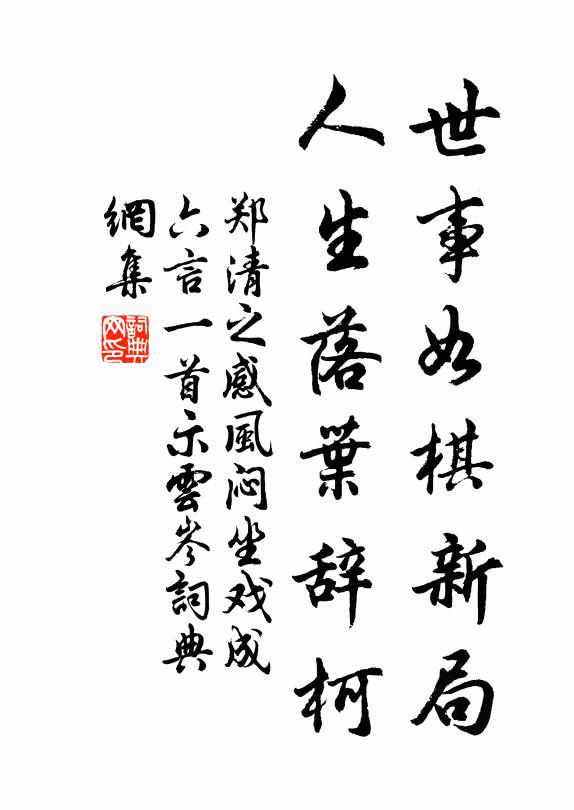 世事如棋新局
人生落葉辞柯
郑清之感風闷坐戏成
六言一首示雲岑詞典
網集
詞典
网印